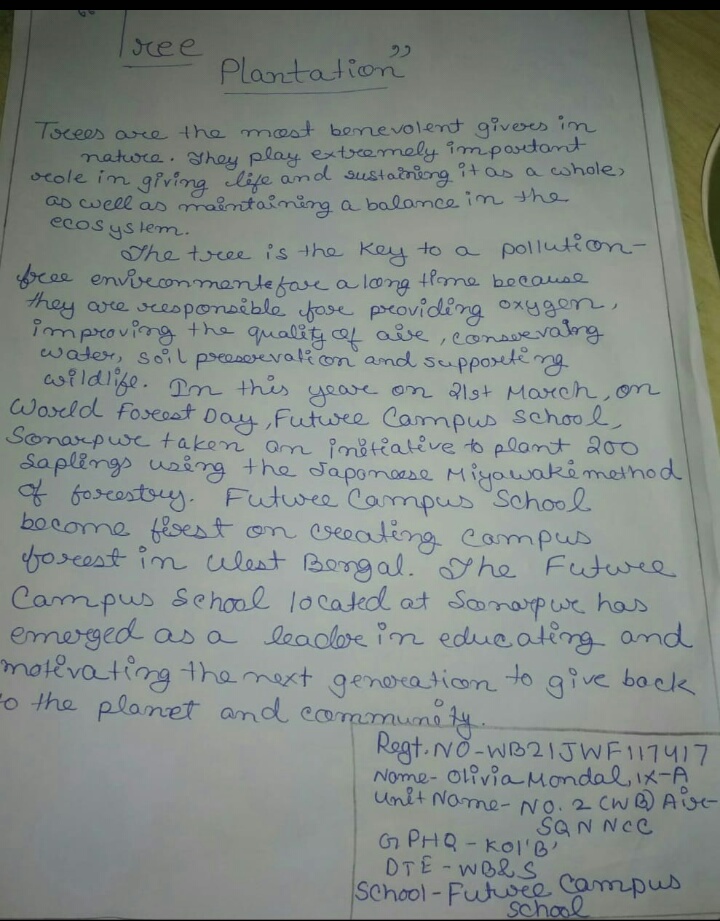 "Tree
Plantation"
Trees are the most benevolent givers in
nature. They play extremely important
role in giving life and sustaining it as a whole,
as well as maintaining a balance in the
ecosystem.
The tree is the key to a pollution-
free environment for a long time because
they are responsible for providing oxygen,
improving the quality of air, conserving
water, soil preservation and supporting
wildlife. In this year on 21st March, on
World Forest Day, Future Campus School,
Sonarpur taken an initiative to plant 200
saplings using the Japanese Miyawaki method
of forestry. Future Campus School
become first on creating campus
forest in West Bengal. The Future
Campus School located at Sonarpur has
emerged as a leader in educating and
motivating the next generation to give back
to the planet and community.
Regt. NO-WB21JWF117417
Name- Olivia Mondal, IX-A
Unit Name- NO. 2 (WB) Air-
SQN NCC
GPHQ - KOl'B'
DTE - WB&S
School - Future Campus
School